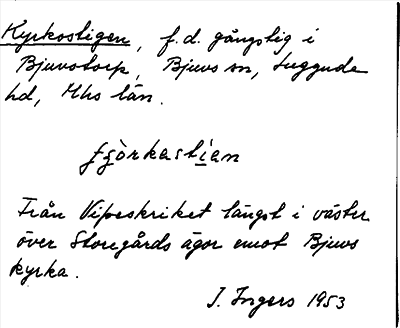 Kyrkostigen, f.d. gångstig i
Bjuvstorp, Bjuvs sn, Luggude
hd, Mhs län.
Från Vipeskriket längst i väster
över Storegårds ägor emot Bjuvs
kyrka.
I. Ingers 1953